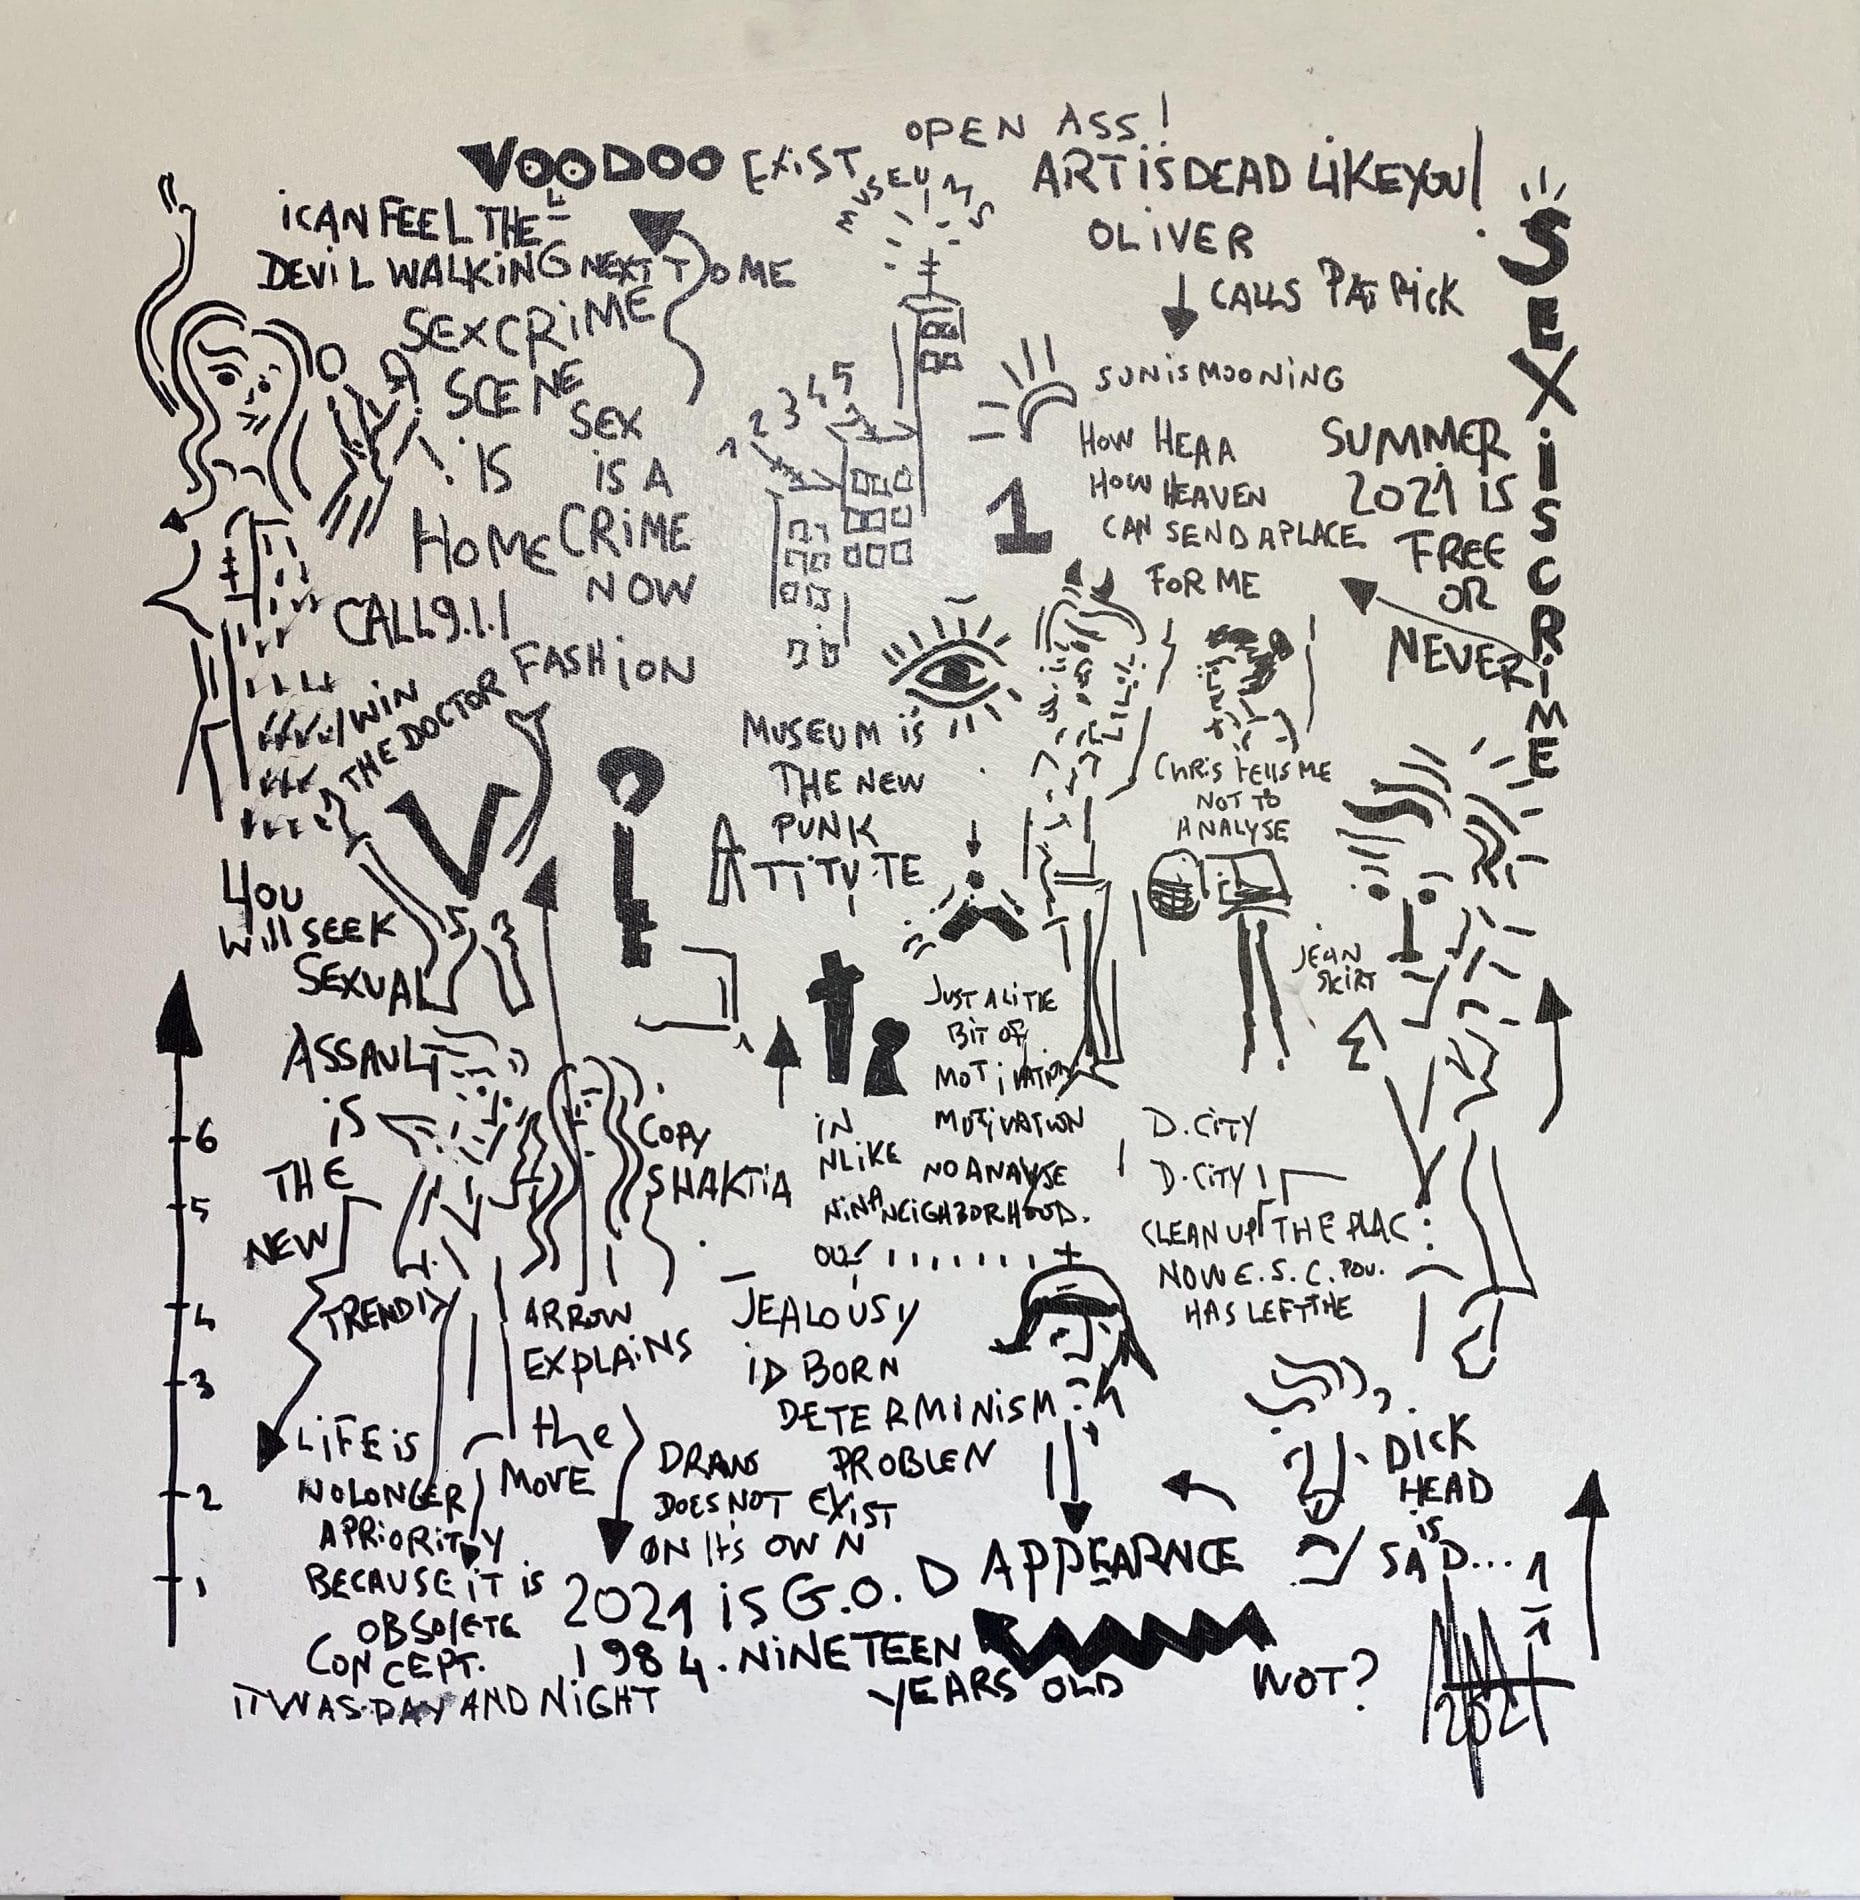 OPEN ASS!
VOODOO EXIST
MUSEUMS
ART IS DEAD LIKE YOU!
I CAN FEEL THE
DEVIL WALKING NEXT TO ME
OLIVER
CALLS PATRICK
SEX IS CRIME
SEXCRIME
SCENE
IS
HOME
SEX
IS A
CRIME
NOW
CALL 9.1.1
1 2 3 4 5
SUN IS MOONING
1
HOW HEAA
HOW HEAVEN
CAN SEND A PLACE
FOR ME
SUMMER
2021 IS
FREE
OR
NEVER
FASHION
WIN
THE DOCTOR
V
MUSEUM IS
THE NEW
PUNK
ATTITUTE
CHRIS TELLS ME
NOT TO
ANALYSE
JEAN
SKIRT
YOU
WILL SEEK
SEXUAL
ASSAULT
IS
THE
NEW
TRENDY
6
5
4
3
2
1
COPY
SHAKTIA
JUST A LITTE
BIT OF
MOTIVATION
MOTIVATION
NO ANALYSE
IN
NLIKE
NINA NEIGHBORHOOD.
OU!
D. CITY
D. CITY
CLEAN UP THE PLAC
NOW E.S.C. POU.
HAS LEFT THE
ARROW
EXPLAINS
the
MOVE
JEALOUSY
ID BORN
DETERMINISM
PROBLEN
DRAWS
DOES NOT EXIST
ON IT'S OWN
LIFE IS
NO LONGER
A PRIORITY
BECAUSE IT IS
OBSOLETE
CONCEPT.
IT WAS DAY AND NIGHT
DICK
HEAD
IS
SAD...
APPEARNCE
2021 IS G.O.D
1984. NINETEEN
YEARS OLD
WOT?
1/1
2021